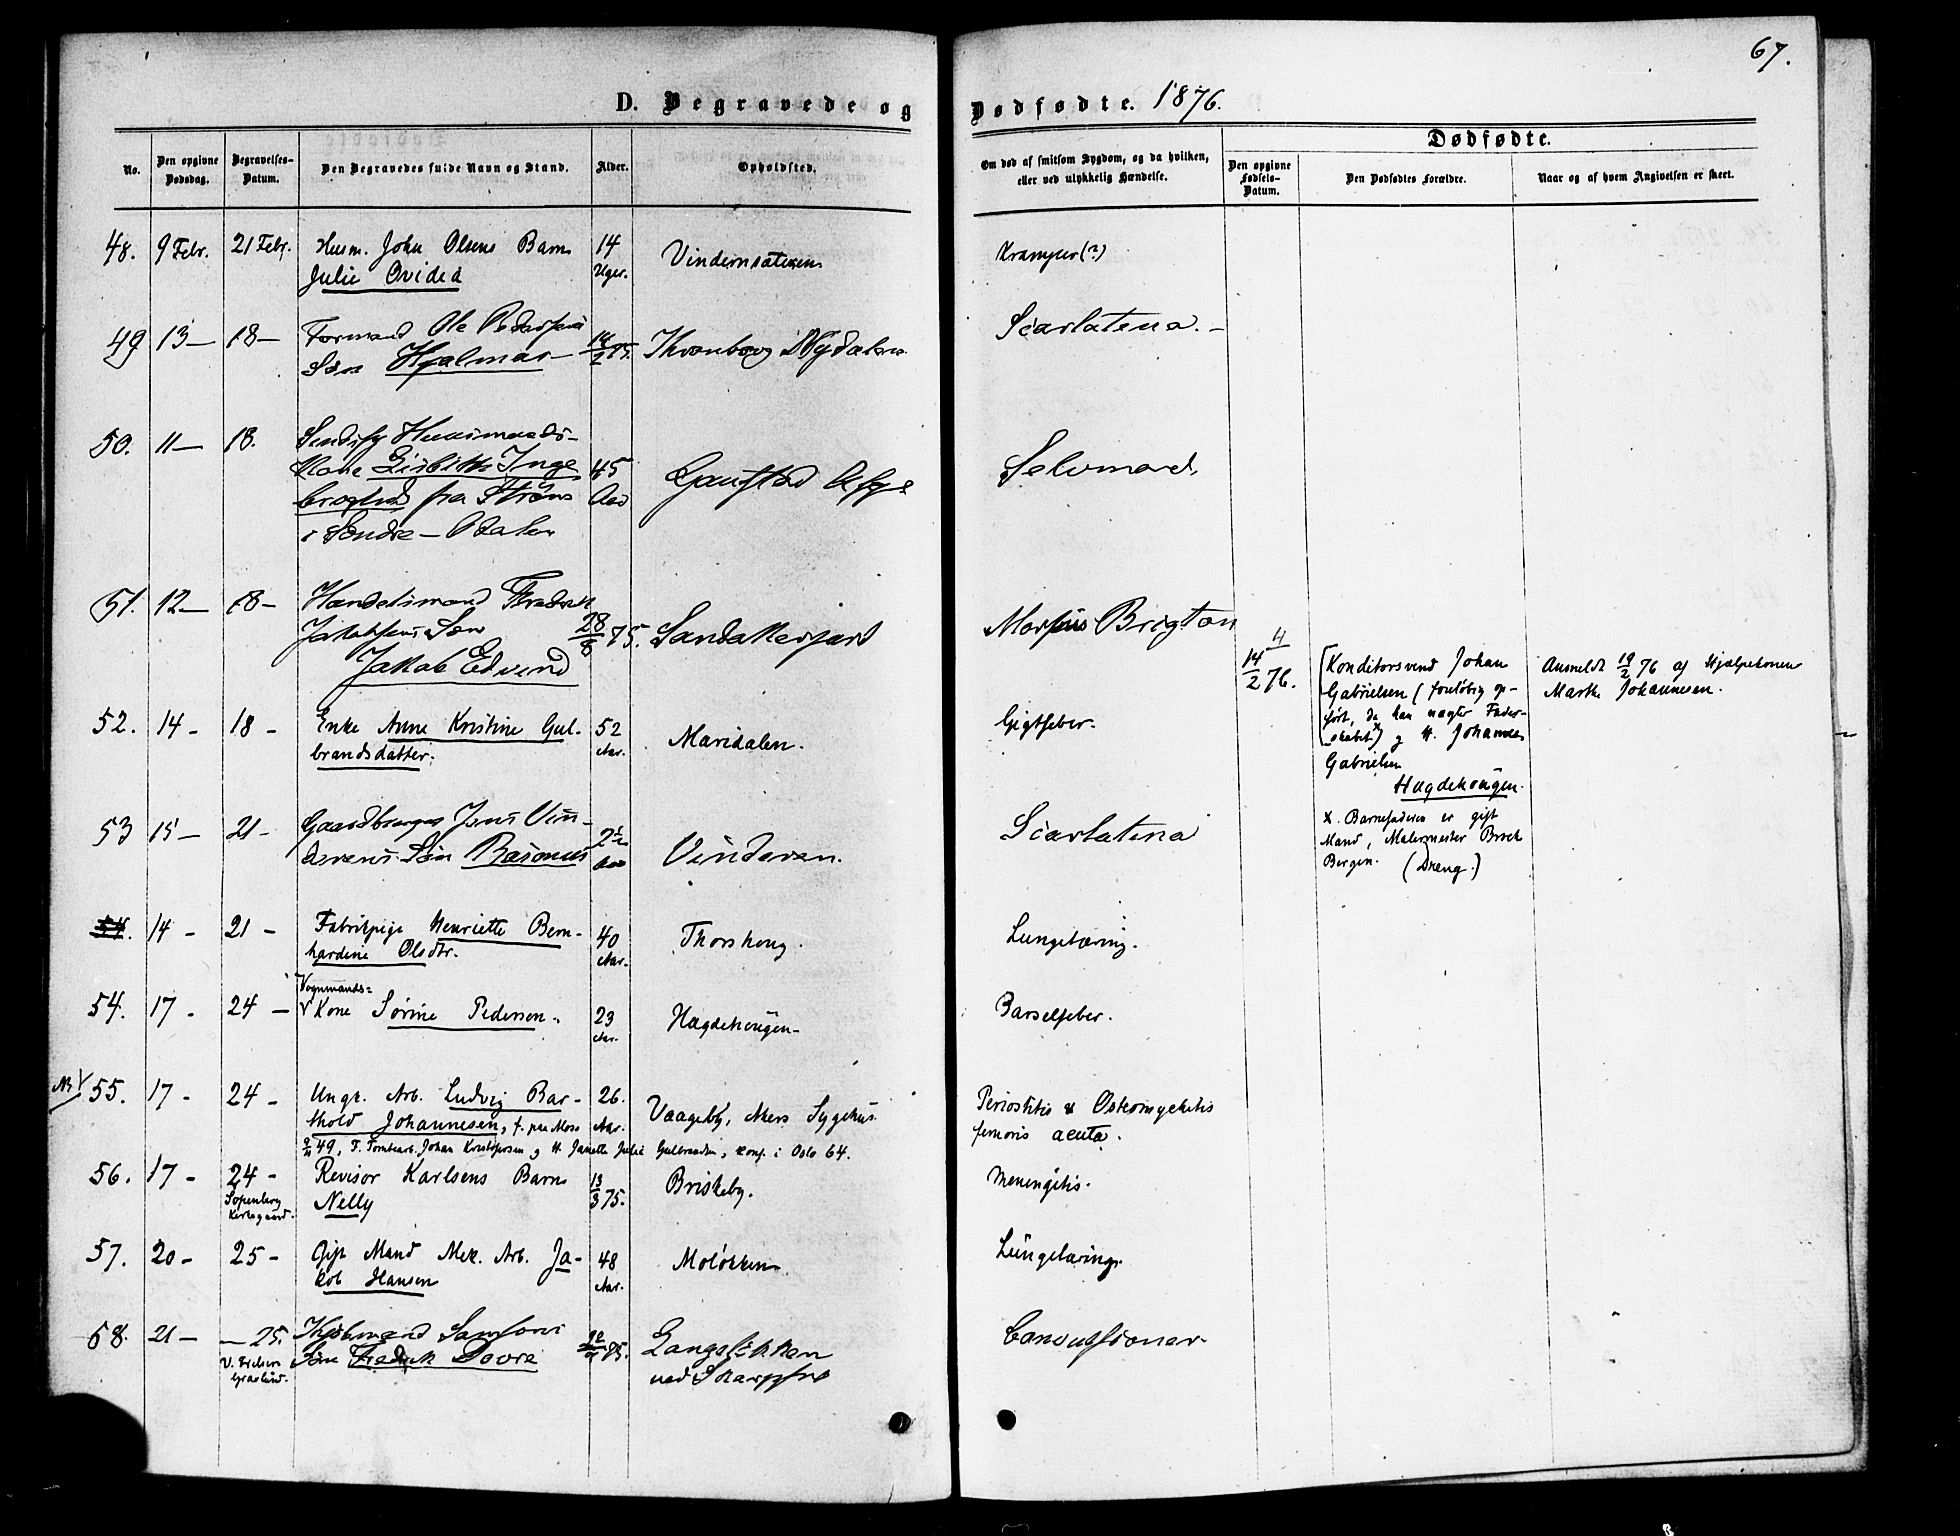 67.
D. Begravede og Dødfødte. 1876.
Dødfødte.
No.
Den opgivne Dødsdag.
Begravelses-Datum.
Den Begravedes fulde Navn og Stand.
Alder.
Opholdssted.
Om død af smitsom Sygdom, og da hvilken, eller ved ulykkelig Hændelse.
Den opgivne Fødsels-Datum.
Den Dødfødtes Forældre.
Naar og af hvem Angivelsen er skeet.
48. 9 Febr. 21 Febr. Husm. John Olsens Barn 14 Krampe (?)
Julie Ovidea Uger.
49 13 — 18 — Formand Ole Pedersens Scarlatena. –
Søn Hjalmar 75. Nydalen
50. 11 — 18. Husmands-
Kone Lisbeth Inge 45 Gaustad Selvmord
fra Strøm
i Søndre – Odalen
51. 12 — 18 – Handelsmand Fredrik
Jakobsens Søn 28/8 75. Morbus Brigton
Jakob Edvind
4
14/2 76. Konditorsvend Johan Anmeldt 19/2 76 af Hjælpekonen
Gabrielsen (foreløbig op- Marthe Johannesen.
ført, da han nægter Fader-
skabet) og H. Johanne
Gabrielsen
Hægdehougen.
x. Barnefaderen er gift
Mand, Malermester Brock
Bergen. (Dreng.)
52. 14 – 18 – Enke Anne Kristine Gul- 52 Maridalen. Gigtfeber.
brandsdatter. Aar.
53 15 — 21 – Gaardbruger Jens Vin- Vinderen. Scarlatena
derens Søn Rasmus
54. 14 – 21 – Fabrikpige Henriette Bern- 40 Thorshoug. Lungetæring.
hardine Olsdtr. Aar.
Vognmands=
54. 17 – 24 – Kone Sørine Pedersen. 23 Hægdehougen – Barselfeber.
Aar.
55. 17 – 24 – Ungk. Arb. Ludvig Bar- 26. Vaageby, Akers Sygehus. Periostitis & Osteomyelitis
thold Johannesen, f. paa Moss Aar. femoris acuta.
49, F. Johan Kristofersen og M. Janette Julie Gulbrandsen, konf. i Oslo 64.
56. 17 – 24 – Revisor Karlsens Barn 13/3 75. Briskeby. Meningitis.
Nelly
57. 20 – 25 – Gift Mand Mek. Arb. Ja- 48 Moløkken Lungetæring.
kob Hansen Aar.
58. 21 — — 25. Samsons Convulsioner
V. Frelsers Søn Fredrik Dovre 75. Langeløkken
Gravlund. ved Skarpsno